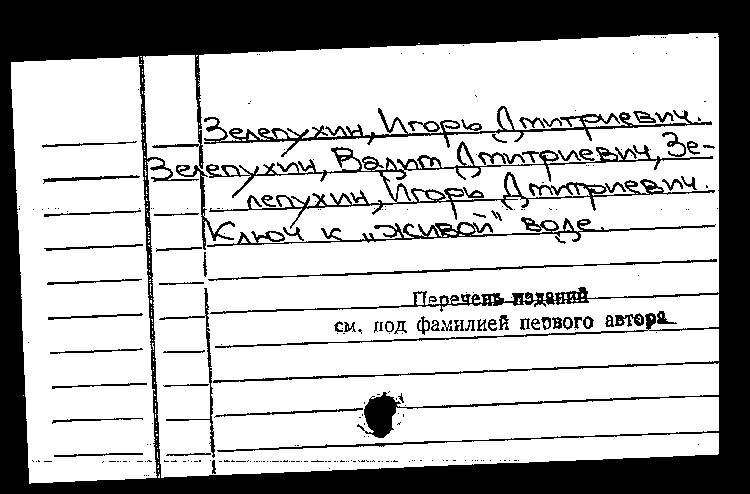 Зелепухин, Игорь Дмитриевич.
Зелепухин, Вадим Дмитриевич, Зе-
лепухин, Игорь Дмитриевич.
Ключ к „живой" воде.
Перечень изданий
см. под фамилией первого автора